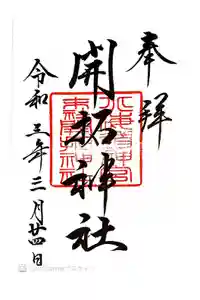 奉拝
開拓神社
令和三年三月廿四日